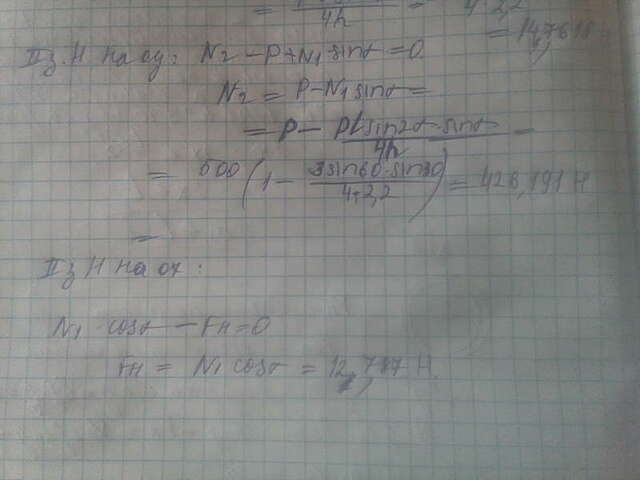 4h 4·2,2
= 147,6184
IIз.Н на оу: N2 - P + N1 sinα = 0
N2 = P - N1 sinα =
= P - Pl sin2α · sinα / 4h =
= 500 (1 - 3 sin60 · sin30 / 4·2,2) = 426,191 Н
=
IIз Н на ох:
N1 cosα - Fн = 0
Fн = N1 cosα = 12,787 Н